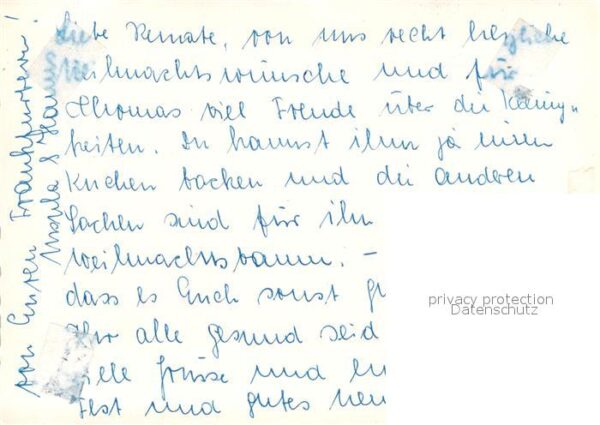 Liebe Renate, von uns recht herzliche
Weihnachtswünsche und für
Thomas viel Freude über die Kleinig„
keiten. Du kannst ihm ja einen
Kuchen backen und die anderen
Sachen sind für ihn
Weihnachtsbaum. –
dass es Euch sonst
Ihr alle gesund seid
viele Grüsse und
Fest und gutes neu
von Euren Frankfurtern!
Ursula & Hannes
privacy protection
Datenschutz